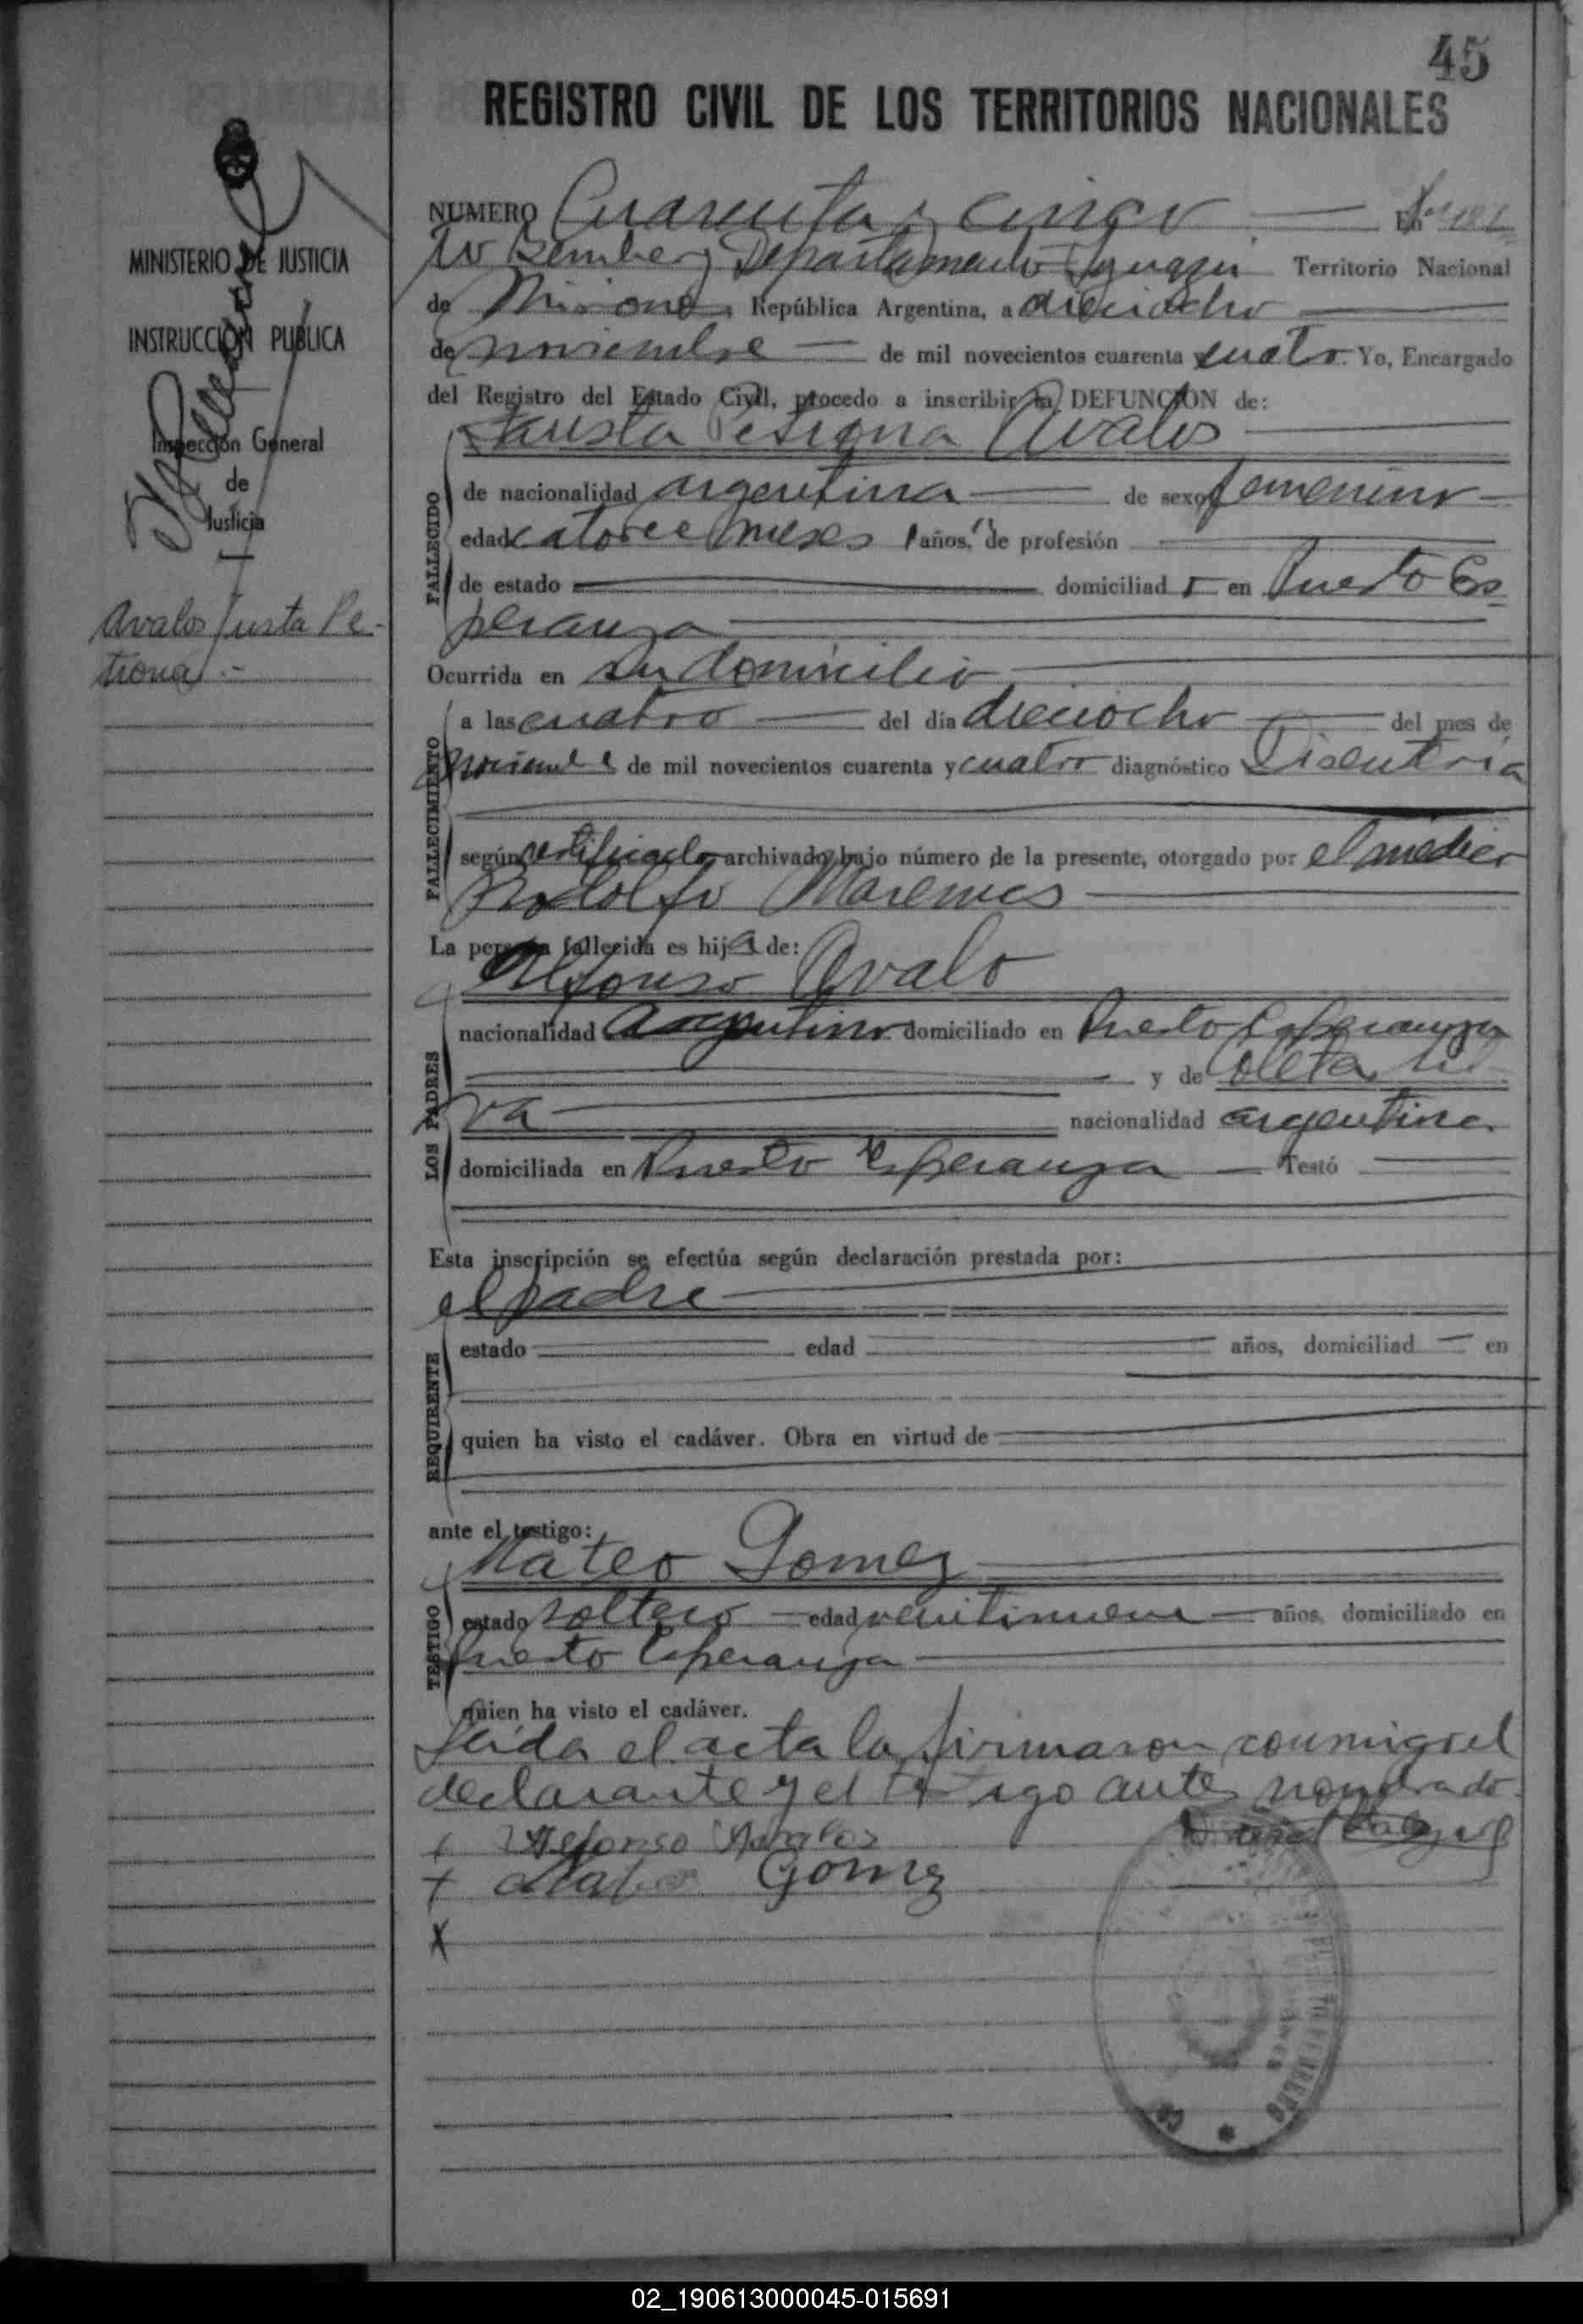 45
REGISTRO CIVIL DE LOS TERRITORIOS NACIONALES
MINISTERIO DE JUSTICIA
INSTRUCCION PUBLICA
Inspección General
de
Justicia
Avalos Justa Pe-
trona.-
NUMERO Cuarenta y cinco En
to Bemberg Departamento Iguazú Territorio Nacional
de Misiones República Argentina, a dieciocho
de noviembre de mil novecientos cuarenta cuatro. Yo, Encargado
del Registro del Estado Civil, procedo a inscribir la DEFUNCION de:
Justa Petrona Avalos
FALLECIDO
de nacionalidad argentina de sexo femenino
edad catorce meses años, de profesión
de estado domiciliad en Puerto Es
peranza
Ocurrida en su domicilio
FALLECIMIENTO
a las cuatro del día dieciocho del mes de
noviembre de mil novecientos cuarenta y cuatro diagnóstico Disentria
según certificado archivado bajo número de la presente, otorgado por el médico
Rodolfo
La persona fallecida es hija de:
Alfonso Avalo
LOS PADRES
nacionalidad Argentino domiciliado en Puerto Esperanza
y de Coleta Sil
va nacionalidad argentina
domiciliada en Puerto Esperanza Testó
Esta inscripción se efectúa según declaración prestada por:
el padre
REQUIRENTE
estado edad años, domiciliad en
quien ha visto el cadáver. Obra en virtud de
ante el testigo:
Mateo Gomez
TESTIGO
estado soltero edad veintinueve años, domiciliado en
Puerto Esperanza
quien ha visto el cadáver.
Leida el acta la firmaron conmigo el
declarante y el testigo antes nombrado
+ Alfonso Avalos
+ Mateo Gomez
X
02_190613000045-015691